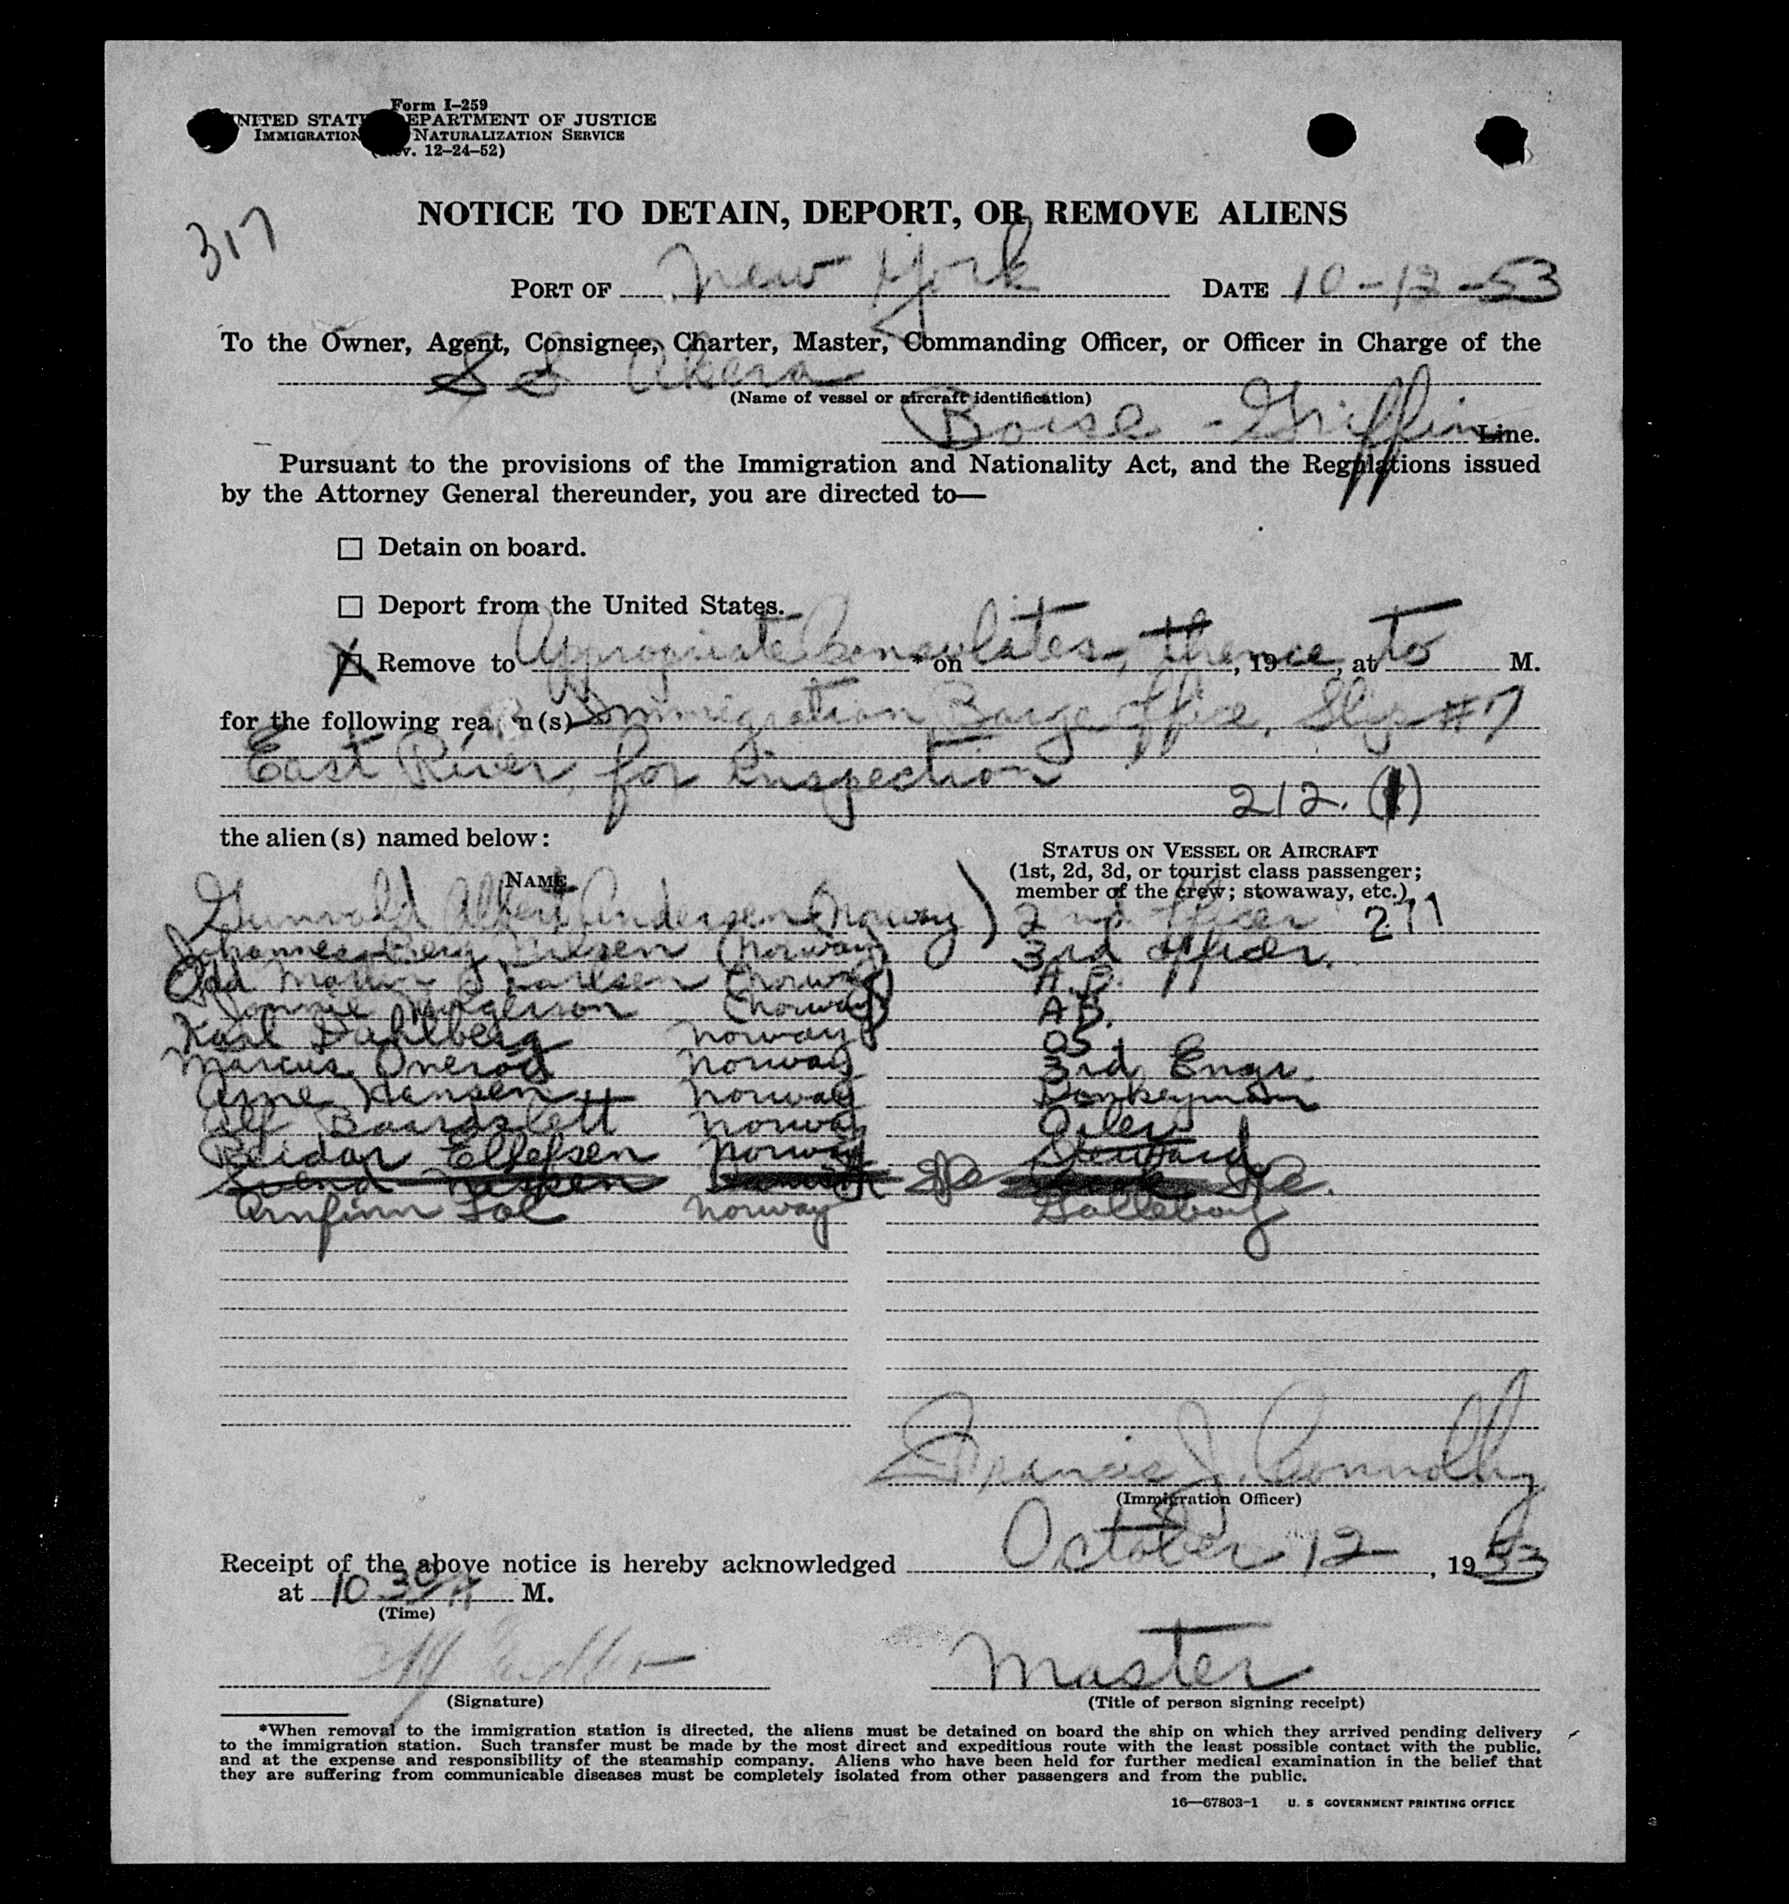 Form I-259
UNITED STATES DEPARTMENT OF JUSTICE
IMMIGRATION NATURALIZATION SERVICE
v. 12-24-52)
317
NOTICE TO DETAIN, DEPORT, OR REMOVE ALIENS
PORT OF New York DATE 10-12-53
To the Owner, Agent, Consignee, Charter, Master, Commanding Officer, or Officer in Charge of the
S S Akera
(Name of vessel or aircraft identification)
Boise - Griffin Line.
Pursuant to the provisions of the Immigration and Nationality Act, and the Regulations issued
by the Attorney General thereunder, you are directed to—
☐ Detain on board.
☐ Deport from the United States.
X Remove to Appropriate Consulates, thence * on , 19 , at to M.
for the following reason(s) Immigration Barge Office, Slip #7
East River, for inspection
212. (1)
the alien(s) named below:
STATUS ON VESSEL OR AIRCRAFT
NAME
(1st, 2d, 3d, or tourist class passenger;
member of the crew; stowaway, etc.)
Gunvald Albert Andersen (Norway) 2nd officer 271
Johannes Berg Nilsen (Norway) 3rd officer.
Odd Martin Karlsen (Norway) A.B.
(Norway) AB.
Karl Dahlberg Norway OS.
Marcus Onerod Norway 3rd Engr.
Arne Hansen Norway Donkeyman
Alf Baardslett Norway Oiler
Reidar Ellefsen Norway Steward
Svend
Arnfinn Fol Norway Galleboy
Francis J. Connolly
(Immigration Officer)
Receipt of the above notice is hereby acknowledged October 12, 1953
at 10 30 A M.
(Time)
Master
(Signature) (Title of person signing receipt)
*When removal to the immigration station is directed, the aliens must be detained on board the ship on which they arrived pending delivery
to the immigration station. Such transfer must be made by the most direct and expeditious route with the least possible contact with the public,
and at the expense and responsibility of the steamship company. Aliens who have been held for further medical examination in the belief that
they are suffering from communicable diseases must be completely isolated from other passengers and from the public.
16—67803-1 U. S GOVERNMENT PRINTING OFFICE